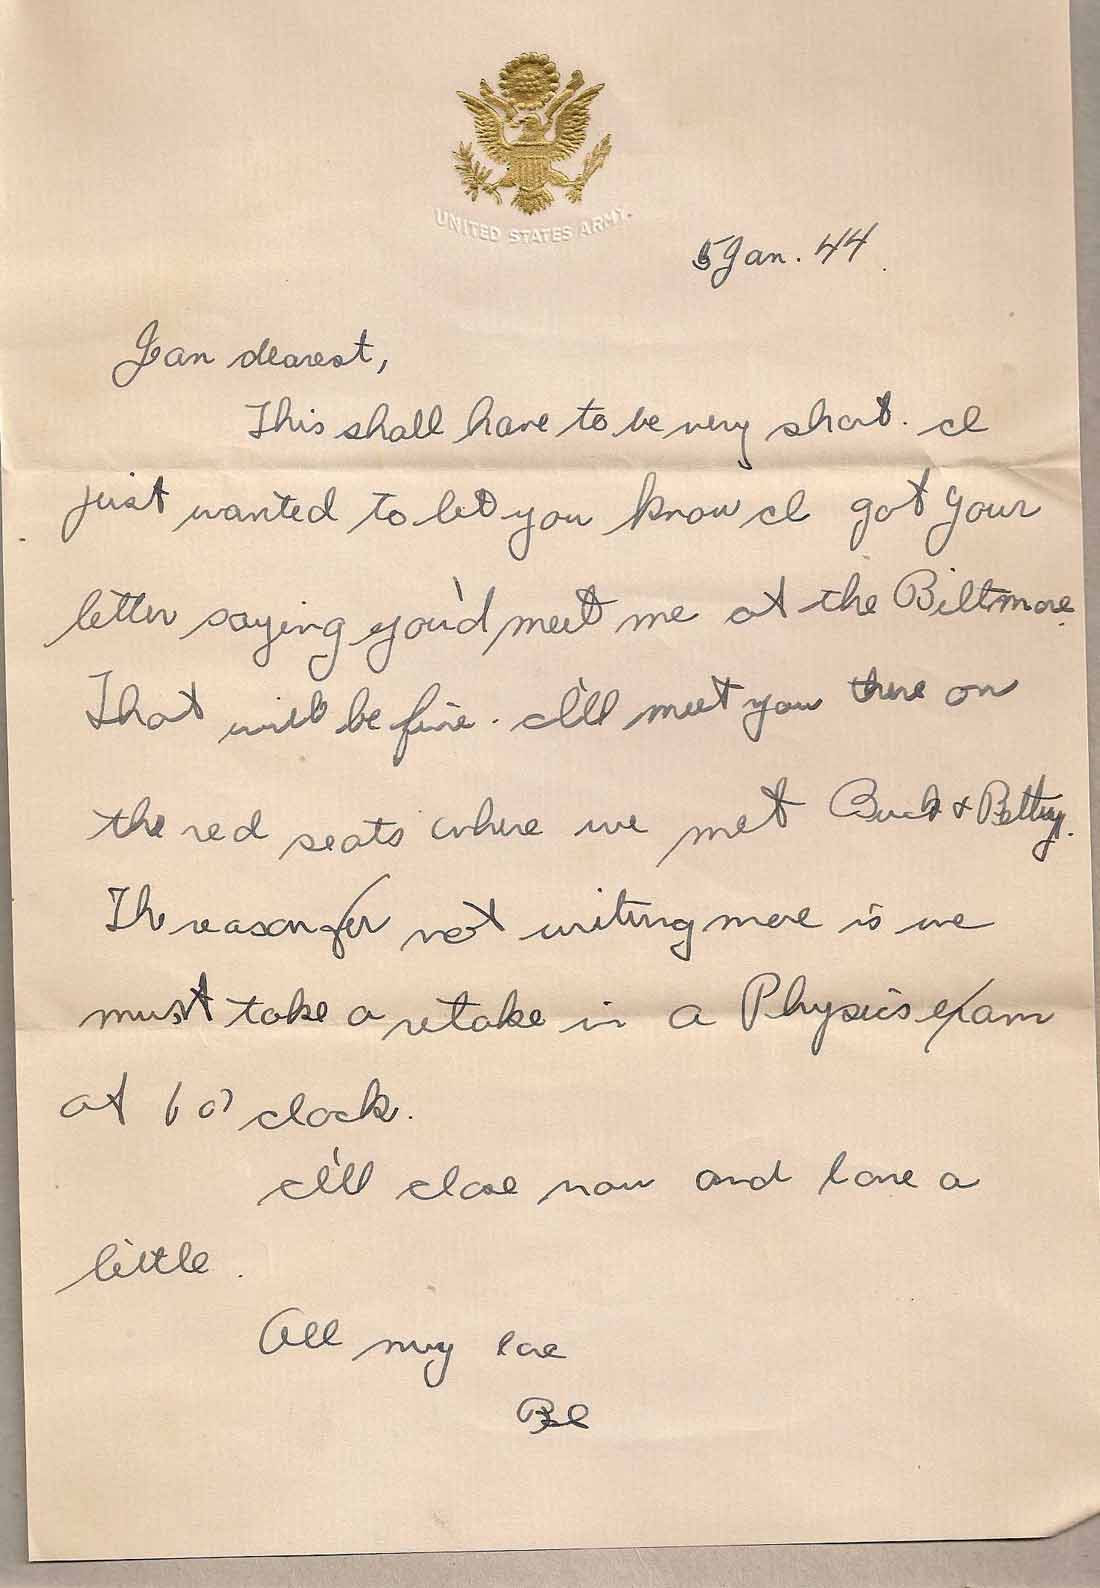 UNITED STATES ARMY.
5 Jan. 44.
Jan dearest,
This shall have to be very short. I
just wanted to let you know I got your
letter saying you'd meet me at the Biltmore.
That will be fine. I'll meet you there on
the red seats where we met Buck & Bettey.
The reason for not writing more is we
must take a retake in a Physics exam
at 6 o'clock.
I'll close now and love a
little.
All my love